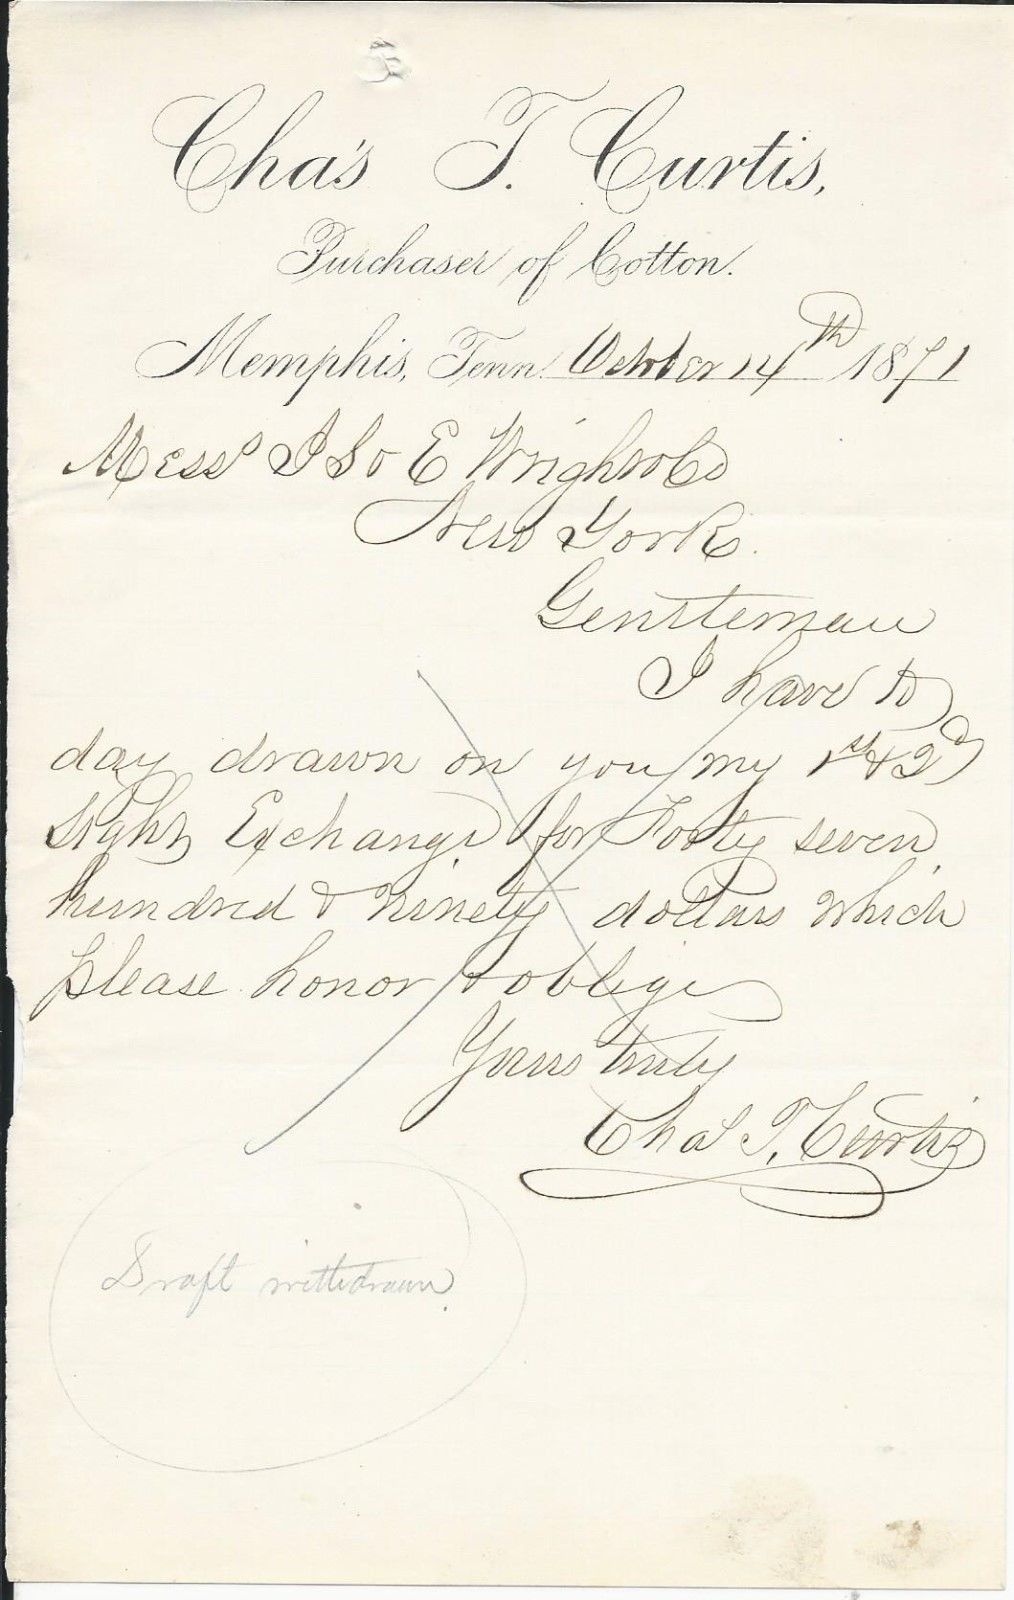 Chas T. Curtis,
Purchaser of Cotton.
Memphis, Tenn. October 14th 1871
Mess J S & E Wright & Co
New York.
Gentleman
I have to
day drawn on you my 1st & 2d
sight Exchange for Forty seven
hundred & ninety dollars which
please honor & oblige
Yours truly
Chas T. Curtis
Draft withdrawn.